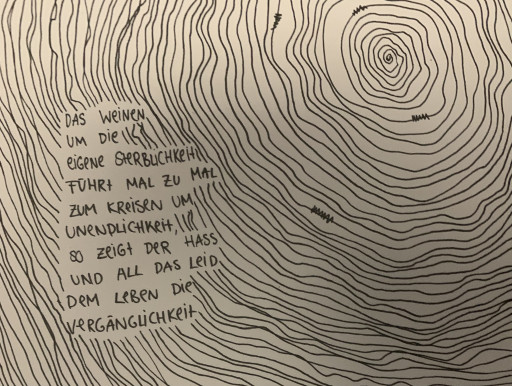 DAS WEINEN
UM DIE
EIGENE STERBLICHKEIT
FÜHRT MAL ZU MAL
ZUM KREISEN UM
UNENDLICHKEIT,
SO ZEIGT DER HASS
UND ALL DAS LEID
DEM LEBEN DIE
VERGÄNGLICHKEIT